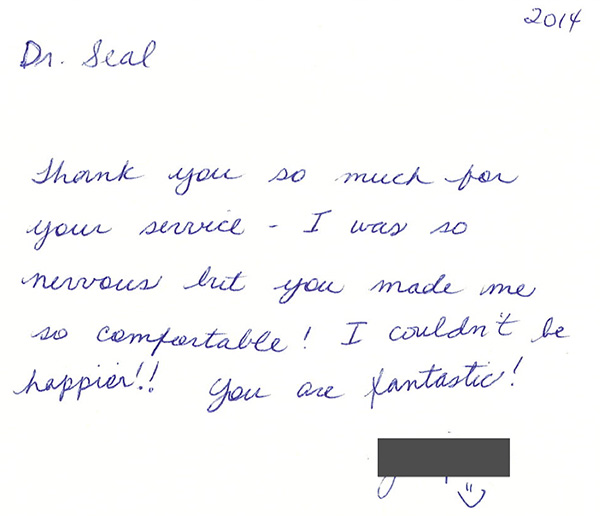 2014
Dr. Seal
Thank you so much for
your service - I was so
nervous but you made me
so comfortable! I couldn't be
happier!! You are fantastic!